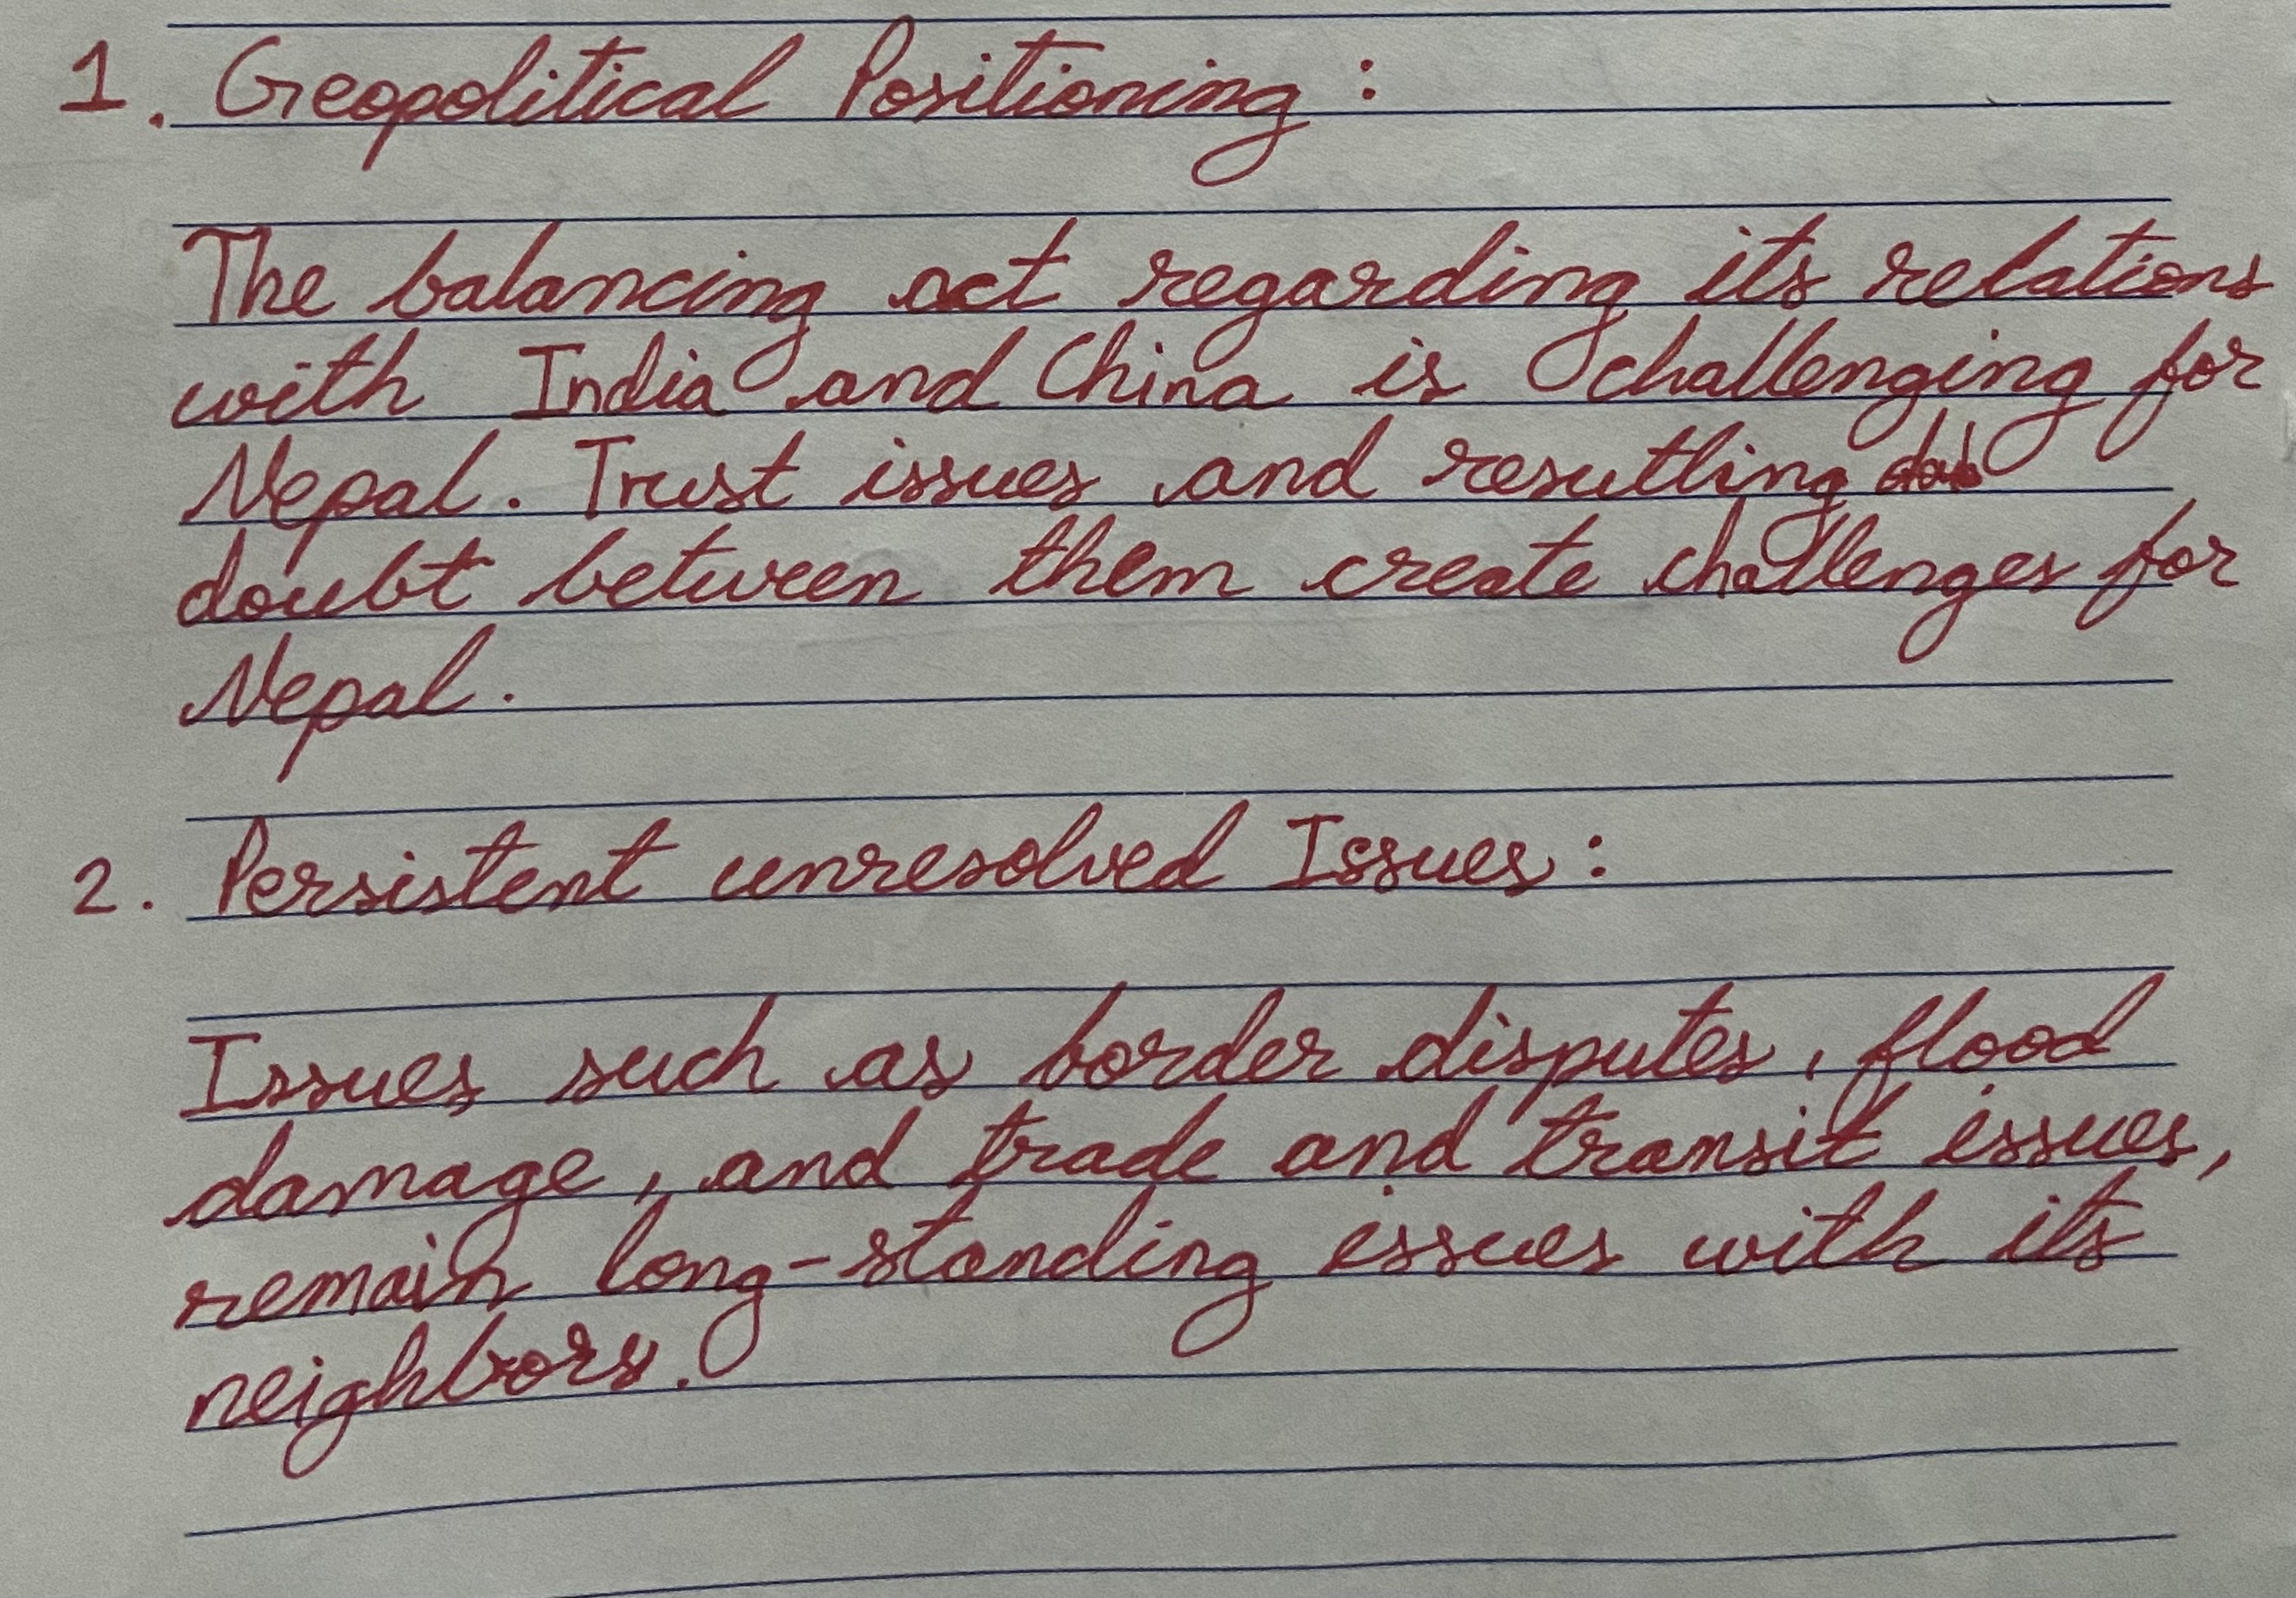 1. Geopolitical Positioning:
The balancing act regarding its relations
with India and China is challenging for
Nepal. Trust issues and resutling
doubt between them create challenges for
Nepal.
2. Persistent unresolved Issues:
Issues such as border disputes, flood
damage, and trade and transit issues,
remain long-standing issues with its
neighbors.